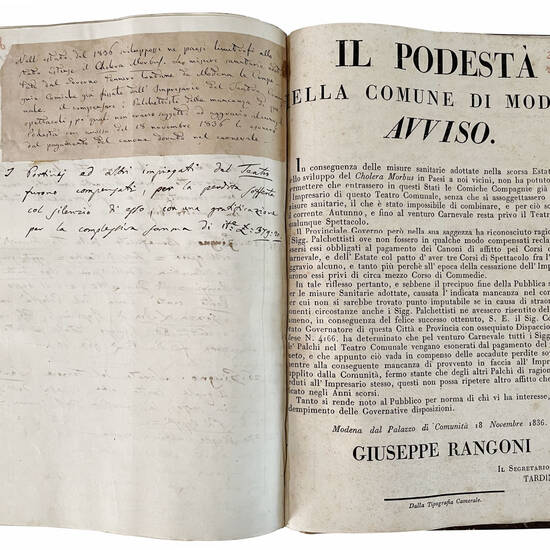 Nell'estate del 1836 sviluppossi ne' paesi limitrofi allo
Stato Estense il Cholera Morbus, che misure sanitarie
dal Governo fecero da Modena la Compa
gnia Comica già fissata dall'Impresario del Teatro
e i Palchettisti della mancanza de'
spettacoli, pe' quali
Podestà con avviso del 18 novembre 1836
dal pagamento del canone dovuto nel carnevale
I Portinaj ed altri impiegati del Teatro
furono compensati, per la perdita sofferta
col silenzio di esso, con una gratificazione
per la complessiva somma di
IL PODESTÀ
DELLA COMUNE DI MOD
AVVISO.
In conseguenza delle misure sanitarie adottate nella scorsa Estat
lo sviluppo del Cholera Morbus in Paesi a noi vicini, non ha potuto
permettere che entrassero in questi Stati le Comiche Compagnie già
Impresario di questo Teatro Comunale, senza che si assoggettassero
misure sanitarie, il che è stato impossibile di combinare, e per ciò sc
il corrente Autunno, e fino al venturo Carnevale resta privo il Teatr
qualunque Spettacolo.
Il Provinciale Governo però nella sua saggezza ha riconosciuto ragio
Sigg. Palchettisti ove non fossero in qualche modo compensati rela
essi obbligati al pagamento de' Canoni di affitto pei Corsi
arnevale, e dell'Estate col patto d'aver tre Corsi di Spettacolo fra l'
aggravio alcuno, e tanto più perchè all'epoca della cessazione dell'Im
urono essi privi di circa mezzo Corso di Commedie.
In tale riflesso pertanto, e sebbene il precipuo fine della Pubblica s
per le misure Sanitarie adottate, causa l'indicata mancanza nel cor
cui non si sarebbe trovato punto imputabile se in causa di straor
menti circostanze anche i Sigg. Palchettisti ne avessero risentito del
ameno, in conseguenza del felice successo ottenuto, S. E. il Sig. Co
stato Governatore di questa Città e Provincia con ossequiato Dispaccio
Mese N. 4166. ha determinato che pel venturo Carnevale tutti i Sigg
de' Palchi nel Teatro Comunale vengano esonerati dal pagamento del
eto, e che appunto ciò vada in compenso delle accadute perdite so
entre alla conseguente mancanza di provento in faccia all'Impr
supplito dalla Comunità, fermo stante che degli altri Palchi di ragion
eduti all'Impresario stesso, questi non possa ripetere altro affitto che
icato negli Anni scorsi.
Tanto si rende noto al Pubblico per norma di chi vi ha interesse,
adempimento delle Governative disposizioni.
Modena dal Palazzo di Comunità 18 Novembre 1836.
GIUSEPPE RANGONI
IL SEGRETARIO
TARDIN
Dalla Tipografia Camerale.